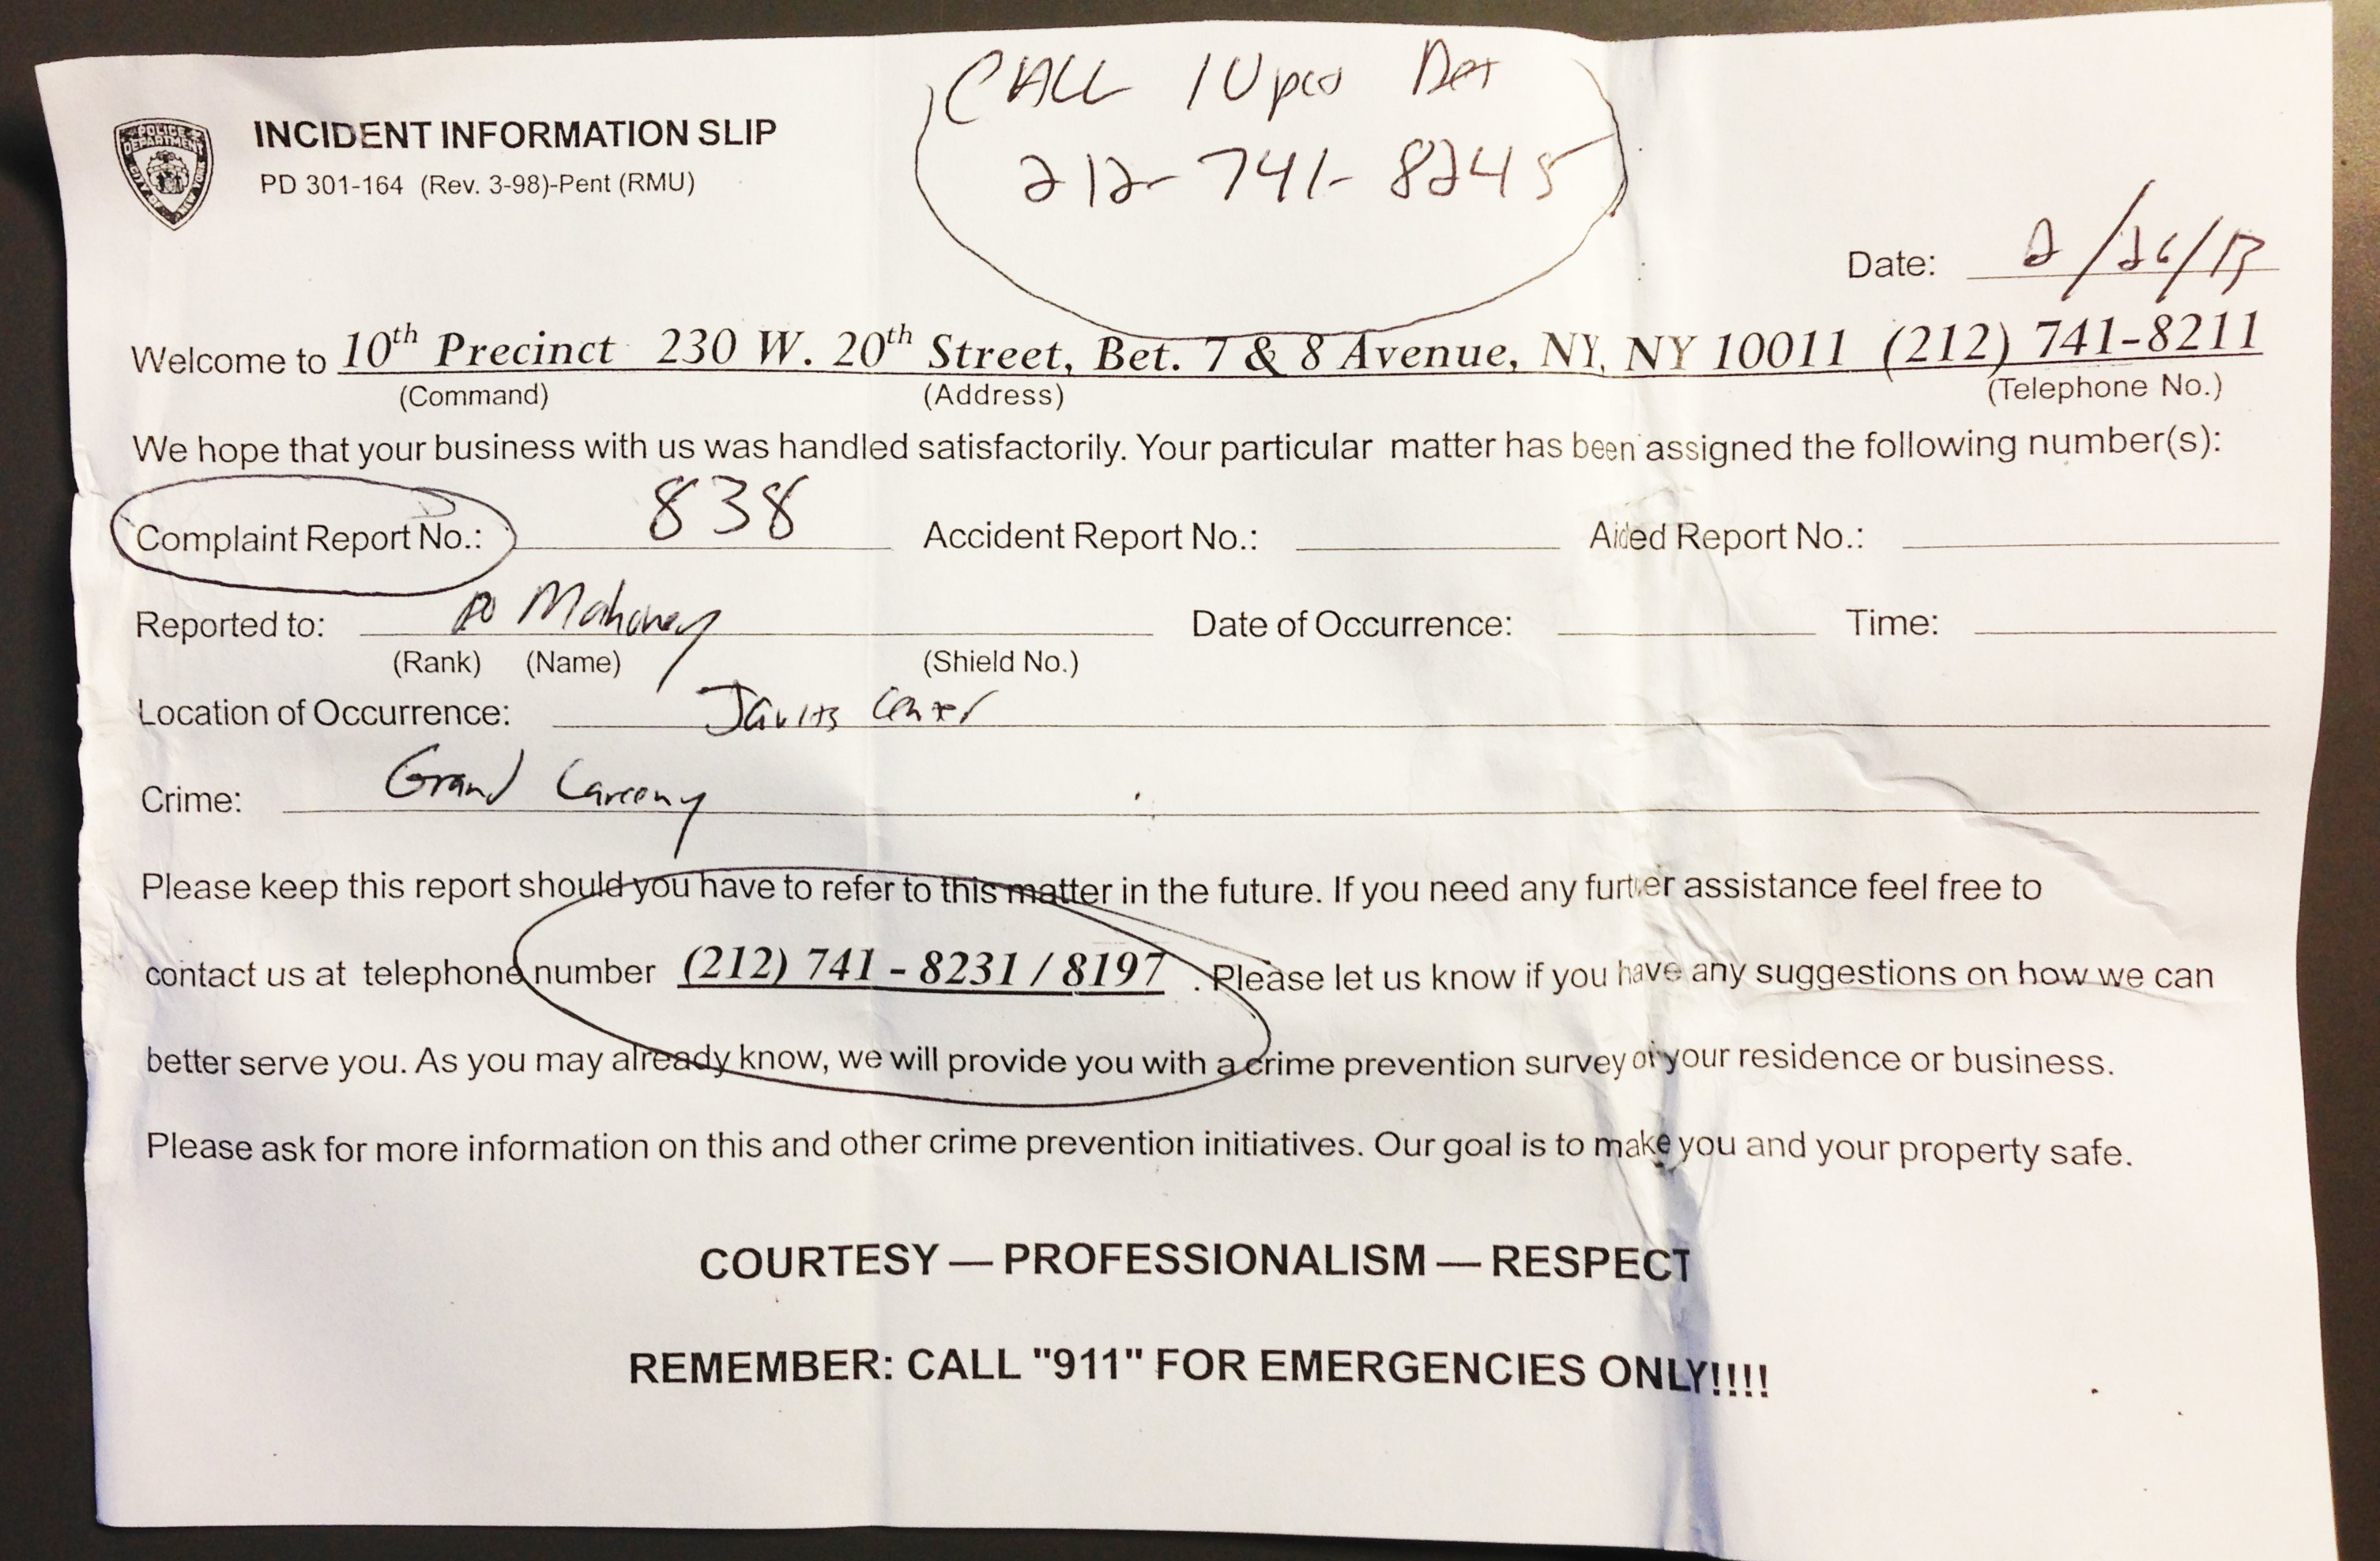 CALL 10 pct Det
212-741-8245
POLICE DEPARTMENT
CITY OF NEW YORK
INCIDENT INFORMATION SLIP
PD 301-164 (Rev. 3-98)-Pent (RMU)
Date: 2/26/13
Welcome to 10th Precinct 230 W. 20th Street, Bet. 7 & 8 Avenue, NY, NY 10011 (212) 741-8211
(Command) (Address) (Telephone No.)
We hope that your business with us was handled satisfactorily. Your particular matter has been assigned the following number(s):
Complaint Report No.: 838 Accident Report No.: Aided Report No.:
Reported to: PO Mahoney Date of Occurrence: Time:
(Rank) (Name) (Shield No.)
Location of Occurrence: Javits Center
Crime: Grand Larceny
Please keep this report should you have to refer to this matter in the future. If you need any further assistance feel free to
contact us at telephone number (212) 741 - 8231 / 8197 . Please let us know if you have any suggestions on how we can
better serve you. As you may already know, we will provide you with a crime prevention survey of your residence or business.
Please ask for more information on this and other crime prevention initiatives. Our goal is to make you and your property safe.
COURTESY — PROFESSIONALISM — RESPECT
REMEMBER: CALL "911" FOR EMERGENCIES ONLY!!!!